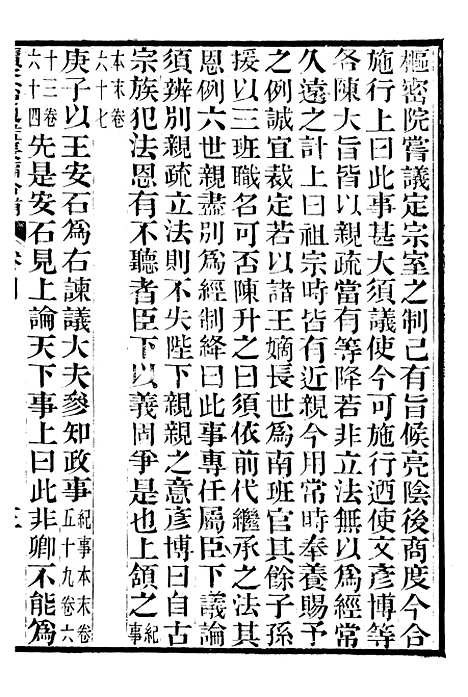 樞密院嘗議定宗室之制已有旨候亮陰後商度今合
施行上曰此事甚大須議使今可施行迺使文彥博等
各陳大旨皆以親疏當有等降若非立法無以為經常
久遠之計上曰祖宗時皆有近親今用常時奉養賜予
之例誠宜裁定若以諸王嫡長世為南班官其餘子孫
援以三班職名可否陳升之曰須依前代繼承之法其
恩例六世親盡別為經制絳曰此事專任屬臣下議論
須辨別親疏立法則不失陛下親親之意彥博曰自古
宗族犯法恩有不聽者臣下以義固爭是也上頷之紀事
本末卷
六十七
庚子以王安石為右諫議大夫參知政事紀事本末卷
五十九卷六
十三卷
六十四先是安石見上論天下事上曰此非卿不能為